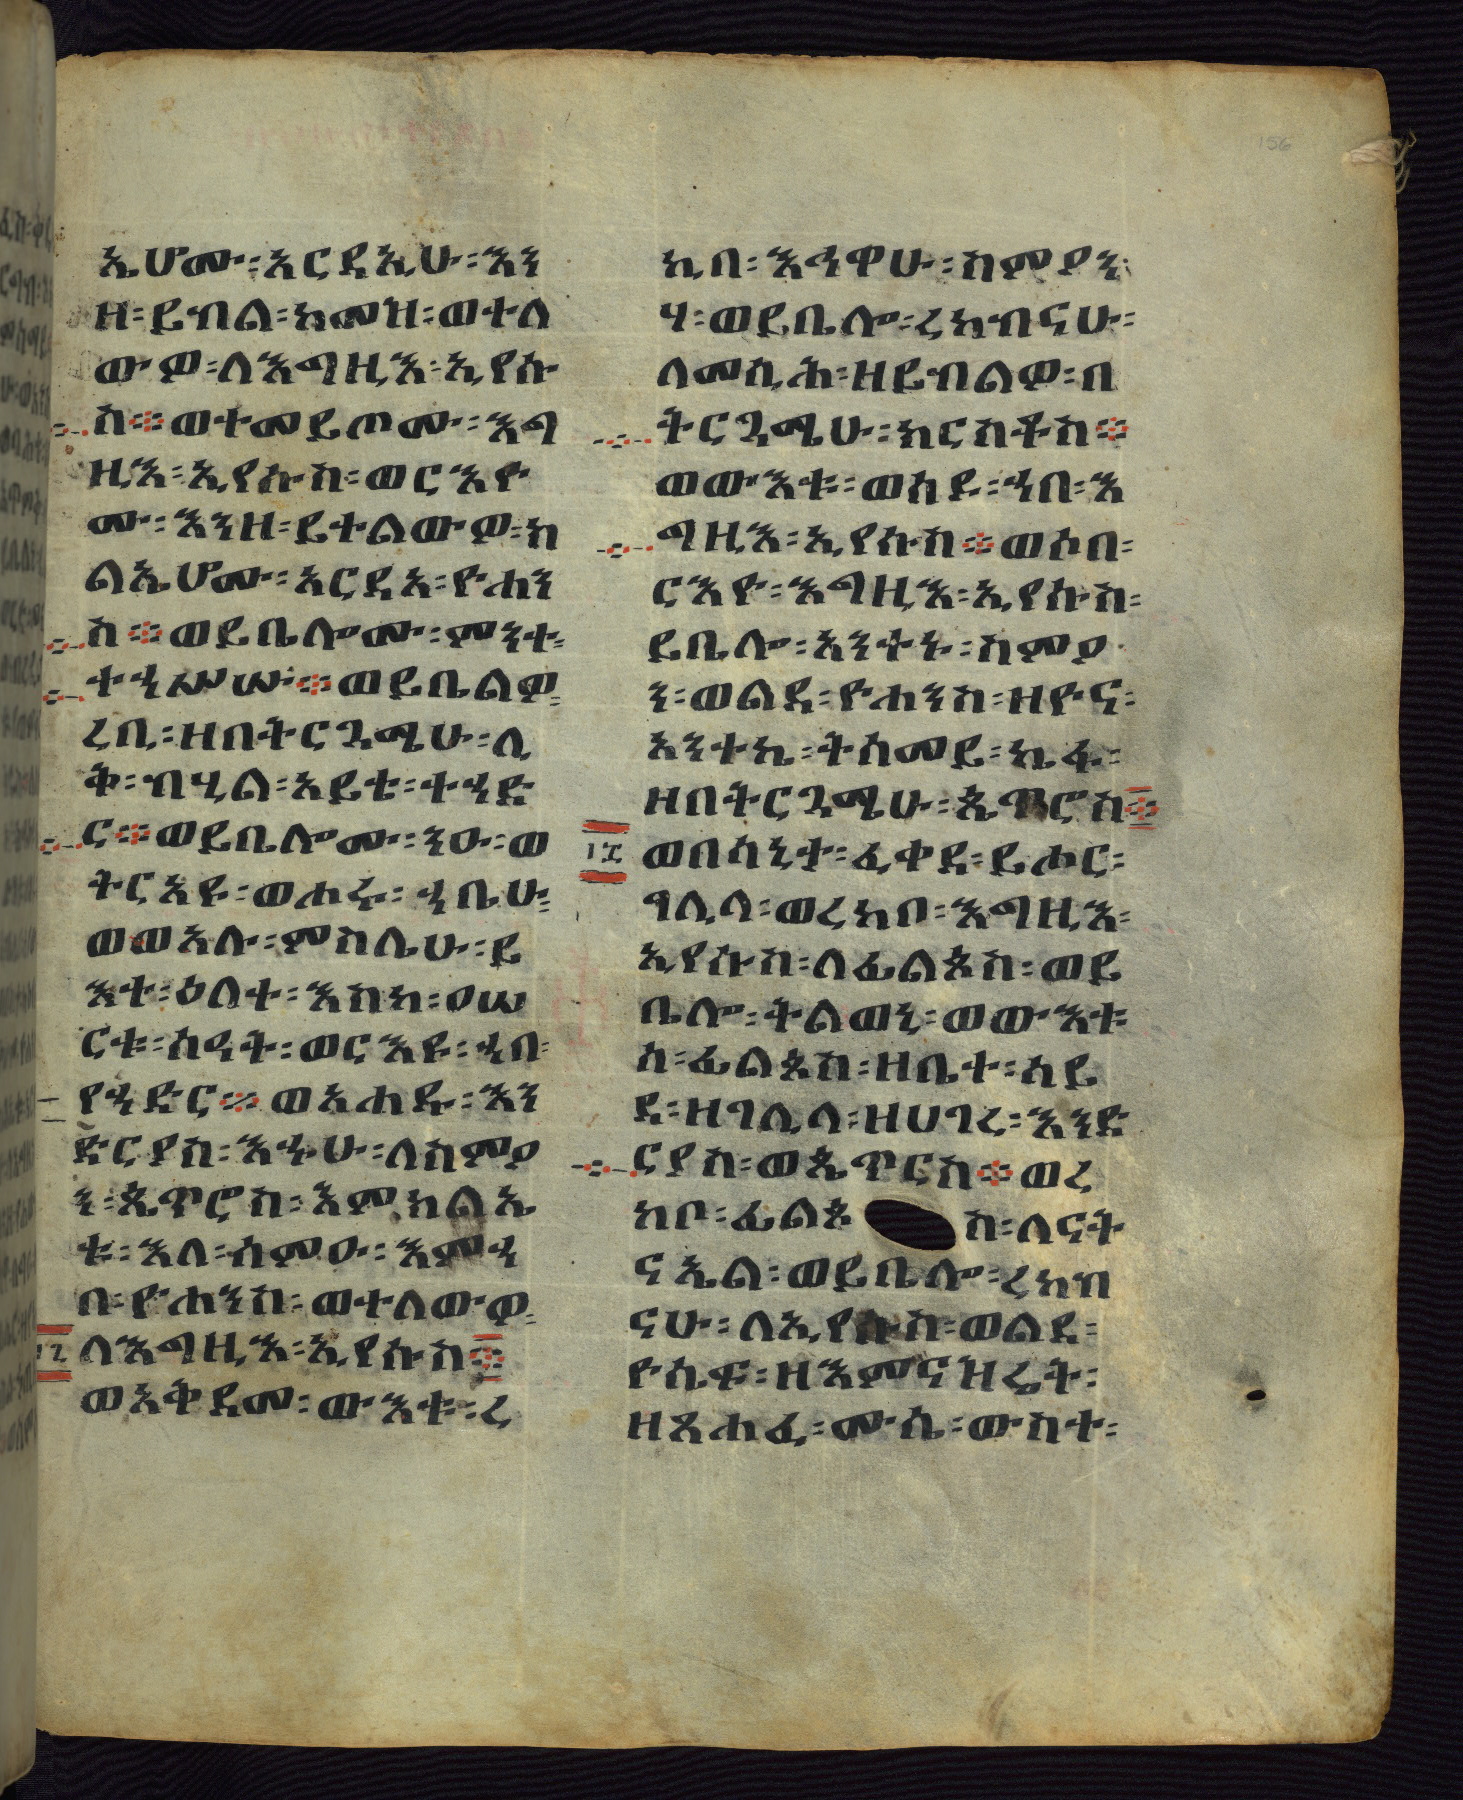 156
ኢሆሙ፡አርዳኢሁ፡እን
ዘ፡ይብል፡ከመዝ፡ወተለ
ውዎ፡ለእግዚእ፡ኢየሱ
ስ፨ወተመይጦሙ፡እግ
ዚእ፡ኢየሱስ፡ወርእዮ
ሙ፡እንዘ፡ይተልውዎ፡ክ
ልኢሆሙ፡አርዳአ፡ዮሐን
ስ፨ወይቤሎሙ፡ምንተ፡
ተኃሥሡ፨ወይቤልዎ፡
ረቢ፡ዘበትርጓሜሁ፡ሊ
ቅ፡ብሂል፡አይቴ፡ተኃድ
ር፨ወይቤሎሙ፡ንዑ፡ወ
ትርአዩ፡ወሖሩ፡ኃቤሁ፡
ወወአሉ፡ምስሌሁ፡ይ
እተ፡ዕለተ፡እስከ፡ዐሠ
ርቱ፡ሰዓት፡ወርእዩ፡ኃበ፡
የኃድር፨ወአሐዱ፡እን
ድርያስ፡እኁሁ፡ለስምዖ
ን፡ጴጥሮስ፡እምክልኤ
ቱ፡እለ፡ሰምዑ፡እምኃ
በ፡ዮሐንስ፡ወተለውዎ፡
፲፯
ለእግዚእ፡ኢየሱስ፨
ወአቅደመ፡ውእቱ፡ረ
ኪበ፡እኅዋሁ፡ስምዖን
ሃ፡ወይቤሎ፡ረከብናሁ፡
ለመሲሕ፡ዘይብልዎ፡በ
ትርጓሜሁ፡ክርስቶስ፨
ወውእቱ፡ወሰዶ፡ኃበ፡እ
ግዚእ፡ኢየሱስ፨ወሶበ፡
ርእዮ፡እግዚእ፡ኢየሱስ፡
ይቤሎ፡አንተኑ፡ስምዖ
ን፡ወልደ፡ዮሐንስ፡ዘዮና፡
አንተኬ፡ትሰመይ፡ኬፋ፡
ዘበትርጓሜሁ፡ጴጥሮስ፨
፲፰
ወበሳኒተ፡ፈቀደ፡ይሖር፡
ገሊላ፡ወረከቦ፡እግዚእ፡
ኢየሱስ፡ለፊልጶስ፡ወይ
ቤሎ፡ትልወኒ፡ወውእቱ
ሰ፡ፊልጶስ፡ዘቤተ፡ሳይ
ዳ፡ዘገሊላ፡ዘሀገረ፡እንድ
ርያስ፡ወጴጥርስ፨ወረ
ከቦ፡ፊልጶስ፡ለናት
ናኤል፡ወይቤሎ፡ረከብ
ናሁ፡ለኢየሱስ፡ወልደ፡
ዮሴፍ፡ዘእምናዝሬት፡
ዘጸሐፈ፡ሙሴ፡ውስተ፡